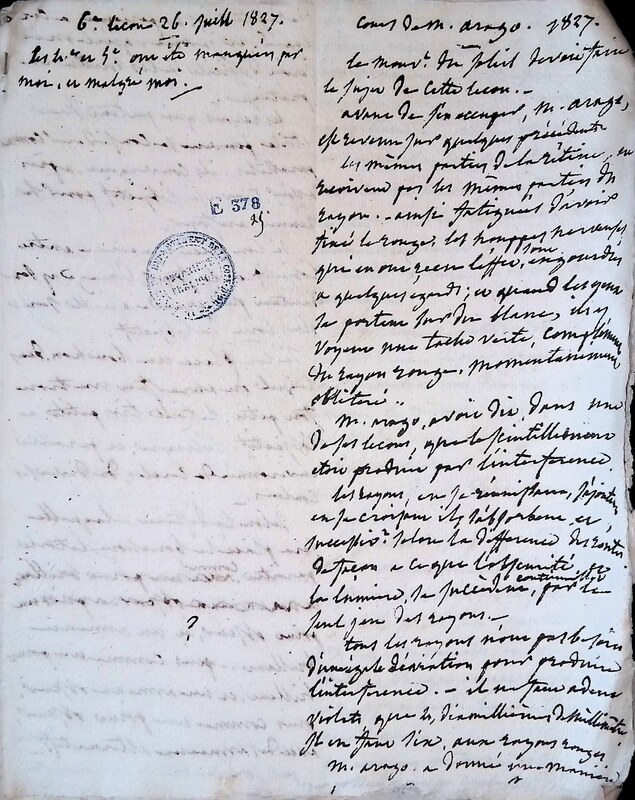 6e lecon 26. juill 1827.
Les 4e et 5e ont été manquées par
moi, et malgré moi.
E 378
25.
?
Cours de M. arago. 1827.
le mouvt. du soleil devoit faire
le sujet de cette lecon. -
avant de s'en occuper, M. arago,
est revenu sur quelques précédents
les mêmes parties de la rétine, ne
recoivent pas les mêmes parties du
rayon. - ainsi fatigués d'avoir
fixé le rouge, les houppes nerveuses
qui en ont recu l'effet, sont engourdis
a quelques egards; et quand les yeux
se portent sur du blanc, ils y
voyent une tache verte, complement
du rayon rouge, momentanement
oblitéré. -
M. arago, avoit dit, dans une
de ses lecons, que la scintillement
etoit produit par l'interference.
les rayons, en se réunissant, s'ajoutent
en se croisant ils s'absorbent et,
successivt. selon la différence des routes
de facon a ce que l'obscurité et
la lumière, se succèdent, par le
seul jeu des rayons. -
tous les rayons n'ont pas besoin
d'une égale déviation pour produire
l'interference. - il ne faut aux
violets que 4, dix millièmes de millimètre
il en faut six, aux rayons rouges
M. arago a donné une manière